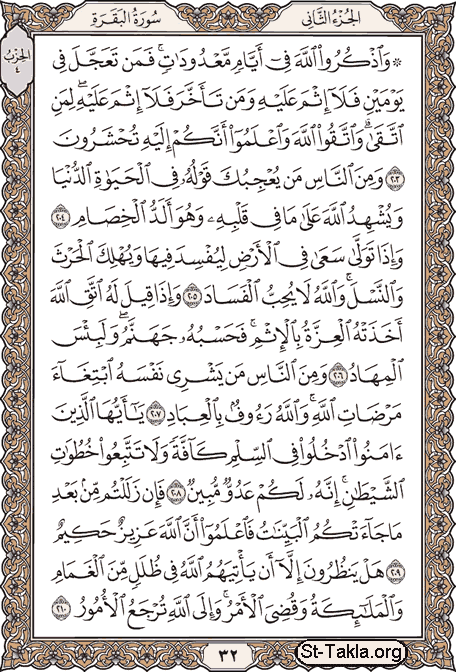 الجُزْءُ الثَّانِي سُورَةُ البَقَرَةِ
الحِزْبُ
٤
۞ وَٱذْكُرُوا۟ ٱللَّهَ فِىٓ أَيَّامٍ مَّعْدُودَٰتٍ ۚ فَمَن تَعَجَّلَ فِى
يَوْمَيْنِ فَلَآ إِثْمَ عَلَيْهِ وَمَن تَأَخَّرَ فَلَآ إِثْمَ عَلَيْهِ ۚ لِمَنِ
ٱتَّقَىٰ ۗ وَٱتَّقُوا۟ ٱللَّهَ وَٱعْلَمُوٓا۟ أَنَّكُمْ إِلَيْهِ تُحْشَرُونَ
٢٠٣ وَمِنَ ٱلنَّاسِ مَن يُعْجِبُكَ قَوْلُهُۥ فِى ٱلْحَيَوٰةِ ٱلدُّنْيَا
وَيُشْهِدُ ٱللَّهَ عَلَىٰ مَا فِى قَلْبِهِۦ وَهُوَ أَلَدُّ ٱلْخِصَامِ ٢٠٤
وَإِذَا تَوَلَّىٰ سَعَىٰ فِى ٱلْأَرْضِ لِيُفْسِدَ فِيهَا وَيُهْلِكَ ٱلْحَرْثَ
وَٱلنَّسْلَ ۗ وَٱللَّهُ لَا يُحِبُّ ٱلْفَسَادَ ٢٠٥ وَإِذَا قِيلَ لَهُ ٱتَّقِ ٱللَّهَ
أَخَذَتْهُ ٱلْعِزَّةُ بِٱلْإِثْمِ ۚ فَحَسْبُهُۥ جَهَنَّمُ ۚ وَلَبِئْسَ
ٱلْمِهَادُ ٢٠٦ وَمِنَ ٱلنَّاسِ مَن يَشْرِى نَفْسَهُ ٱبْتِغَآءَ
مَرْضَاتِ ٱللَّهِ ۗ وَٱللَّهُ رَءُوفٌۢ بِٱلْعِبَادِ ٢٠٧ يَٰٓأَيُّهَا ٱلَّذِينَ
ءَامَنُوا۟ ٱدْخُلُوا۟ فِى ٱلسِّلْمِ كَآفَّةً وَلَا تَتَّبِعُوا۟ خُطُوَٰتِ
ٱلشَّيْطَٰنِ ۚ إِنَّهُۥ لَكُمْ عَدُوٌّ مُّبِينٌ ٢٠٨ فَإِن زَلَلْتُم مِّنۢ بَعْدِ
مَا جَآءَتْكُمُ ٱلْبَيِّنَٰتُ فَٱعْلَمُوٓا۟ أَنَّ ٱللَّهَ عَزِيزٌ حَكِيمٌ
٢٠٩ هَلْ يَنظُرُونَ إِلَّآ أَن يَأْتِيَهُمُ ٱللَّهُ فِى ظُلَلٍ مِّنَ ٱلْغَمَامِ
وَٱلْمَلَٰٓئِكَةُ وَقُضِىَ ٱلْأَمْرُ ۚ وَإِلَى ٱللَّهِ تُرْجَعُ ٱلْأُمُورُ ٢١٠
٣٢
St-Takla.org